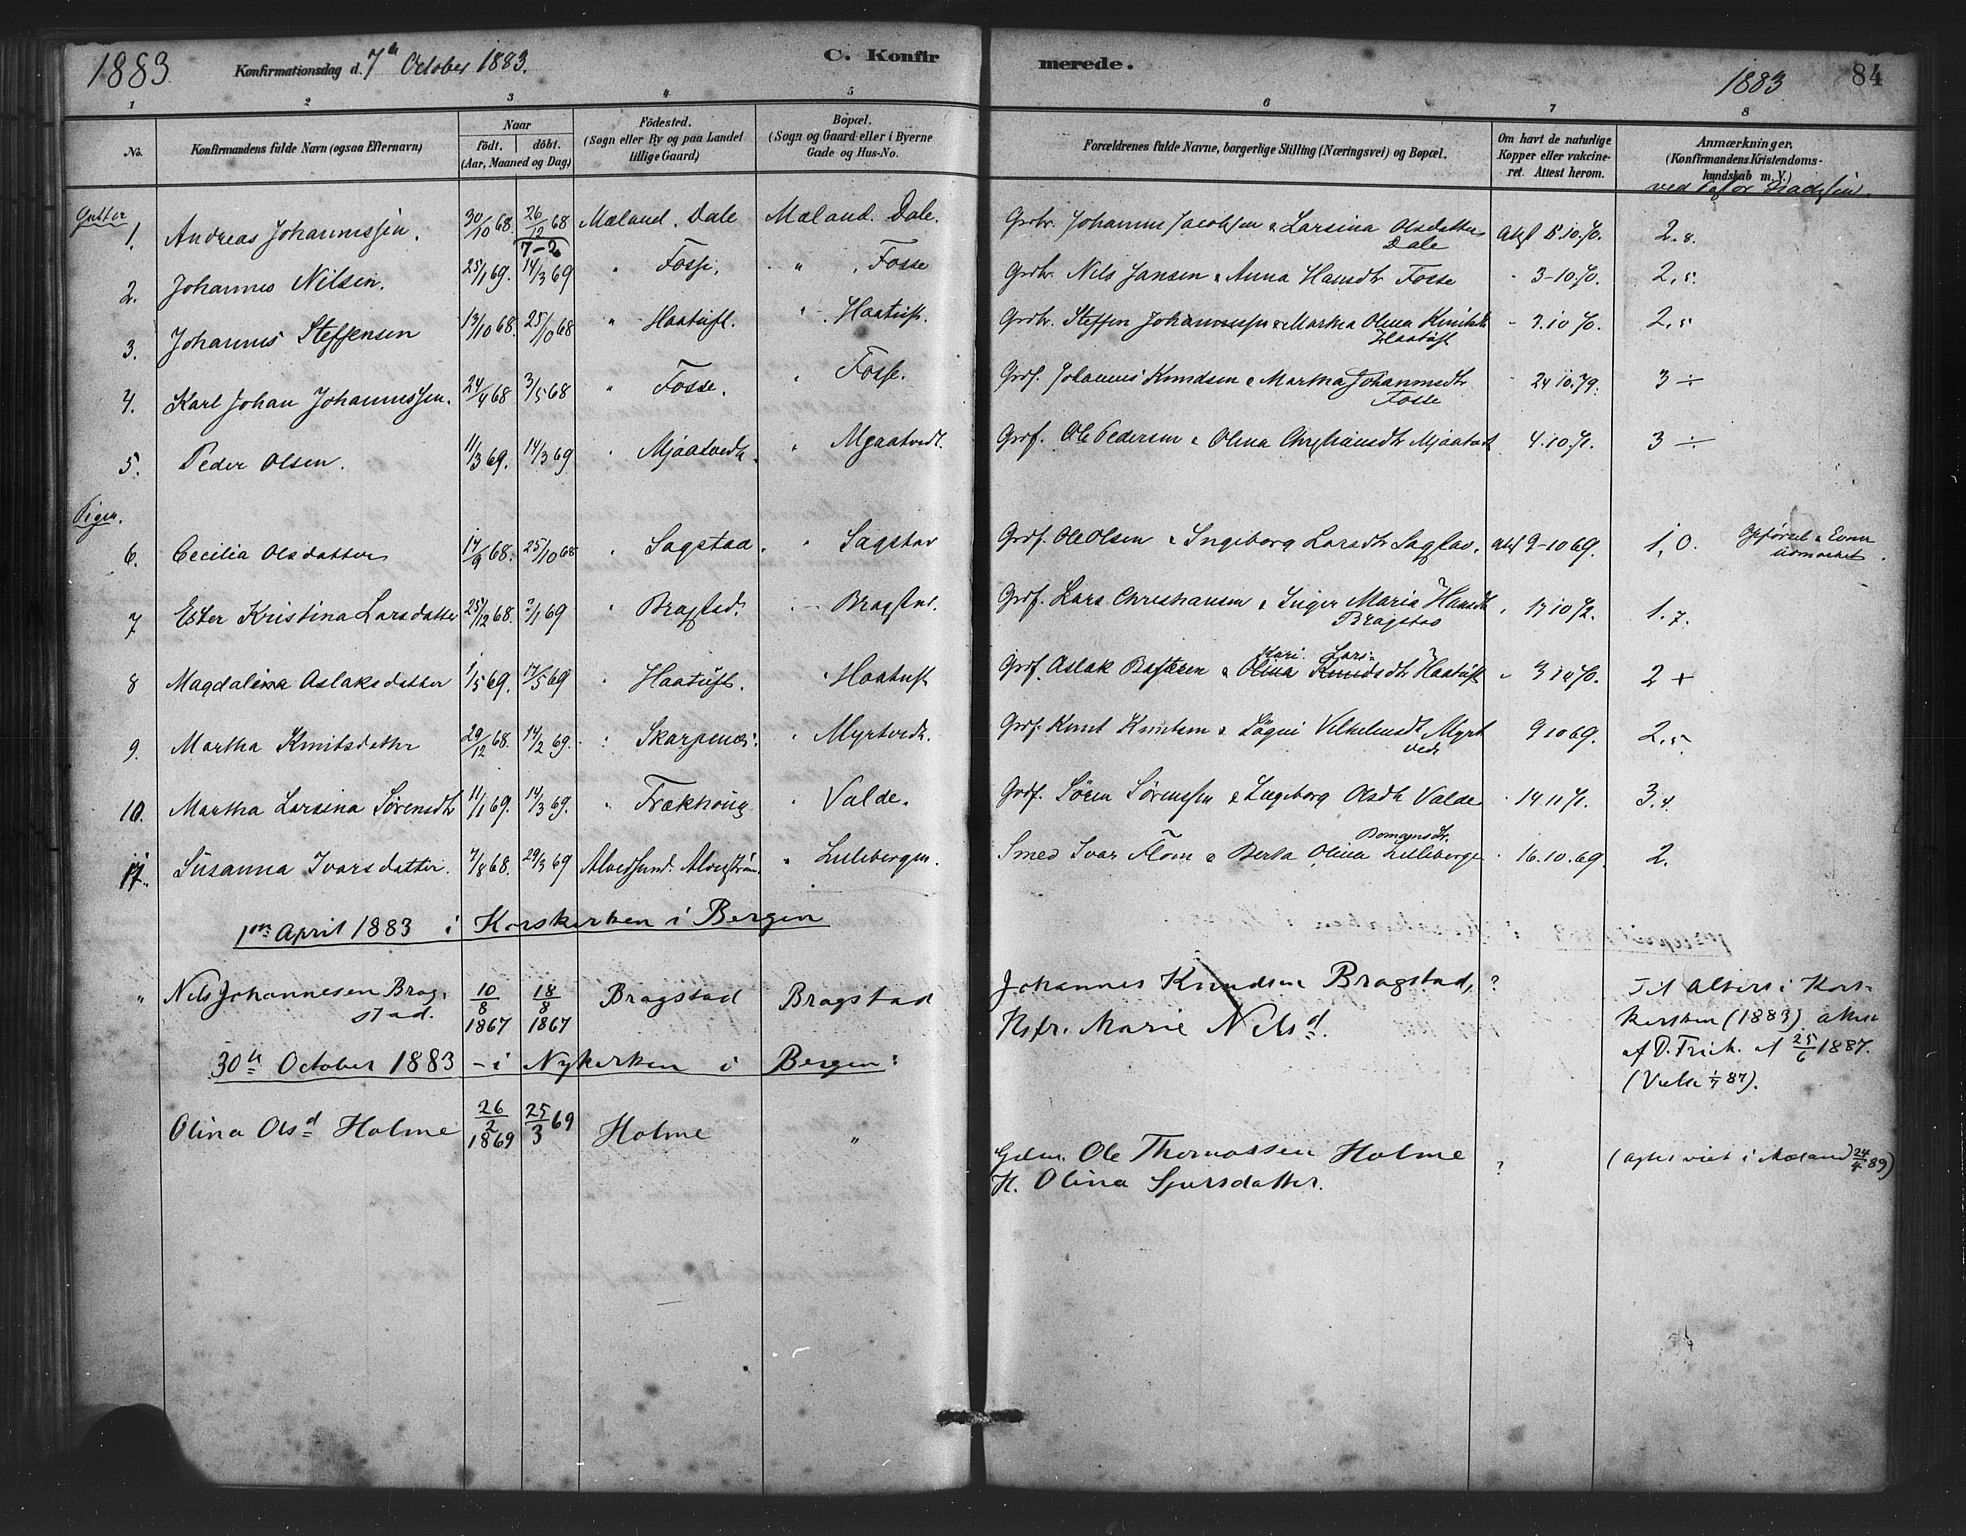 1883. Konfirmationsdag d. 7de October 1883. C. Konfirmerede. 1883 84
1 2 3 4 5 6 7 8
No. Konfirmandens fulde Navn (ogsaa Efternavn) Naar født. døbt. (Aar, Maaned og Dag) Födested. (Sogn eller By og paa Landet tillige Gaard) Bopæl. (Sogn og Gaard eller i Byerne Gade og Hus-No. Forældrenes fulde Navne, borgerlige Stilling (Næringsvei) og Bopæl. Om havt de naturlige Kopper eller vakcineret. Attest herom. Anmærkninger. (Konfirmandens Kristendomskundskab m. V.)
ved Pastor
Gutter
1. Andreas Johannessen. 30/10 68. 26/12 68 7-2 Mæland. Dale Mæland. Dale. Grdbr. Johannes Jacobsen & Larsina Olsdatter Dale Atst 5.10.70. 2.8.
2. Johannes Nilsen. 25/1 69. 14/3 69 " Fosse. " Fosse Grdbr. Nils Jansen & Anna Hansdtr Fosse - 3-10.70. 2,5.
3. Johannes Steffensen 13/10 68. 25/10 68 " Haatuft. " Haatuft. Grdbr. Steffen Johannessen & Martha Olina Knutsdtr Haatuft - 3.10 70. 2,5
4. Karl Johan Johannessen. 24/4 68 3/5 68 " Fosse. " Fosse. Grdf. Johannes Knudsen & Martha Johannesdtr Fosse - 24 10.79. 3 ÷
5. Peder Olsen. 11/3 69. 14/3 69 " Mjaatvedt. " Mjaatvedt. Grdf. Ole Pedersen & Olina Christiansdtr Mjaatvedt - 4.10.71. 3 ÷
Piger.
6. Cecilia Olsdatter 17/9 68. 25/10 68 " Sagstad. " Sagstad Grdf. Ole Olsen & Ingeborg Larsdtr Sagstad. Atst 9-10 69. 1,0. Opførsel & Evner udmærket.
7 Ester Kristina Larsdatter 25/12 68. 3/1 69 " Bragstad. " Bragstad. Grdf. Lars Christiansen & Inger Maria Hansdtr Bragstad " 17 10 72. 1.7.
8 Magdalena Aslaksdatter 1/5 69. 17/5 69 " Haatuft. " Haatuft Grdf. Aslak & Kari Lars- Olina Knudsdtr Haatuft " 3 10 70. 2 +
9. Martha Knutsdatter 29/12 68. 14/2 69. " Skarpenæs. " Myrtvedt. Grdf. Knut Knutsen & Vilhelmsdt Myrtvedt 9 10 69. 2,5.
10. Martha Larsina Sørensdtr 11/1 69. 14/3 69. " Trækhoug " Valde. Grdf. Søren Sørenssen & Ingeborg Olsdtr Valde " 14 11 71. 3.4.
11. Susanna Ivarsdatter. 7/8 68. 29/3 69 Alversund. Alverstrøm " Lillebergen. Smed Ivar Flom & Berta Olina Lilleberge " 16.10.69. 2.
1ste April 1883 i Korskirken i Bergen
" Nils Johannesen Bragstad. 10/8 1867 18/8 1867 Bragstad Bragstad Johannes Knudsen Bragstad, Hsfr. Marie Nilsd. ? Til Alters i Korskirken (1883) attest af D. Frich. af 25/6 1887. (Viede 1/7 87).
30te October 1883 - i Nykirken i Bergen:
Olina Olsd Holme 26/2 1869 25/3 69 Holme " Gdm. Ole Thomassen Holme H. Olina Sjursdatter. ? (agtes viet i Mæland 24/4 89)